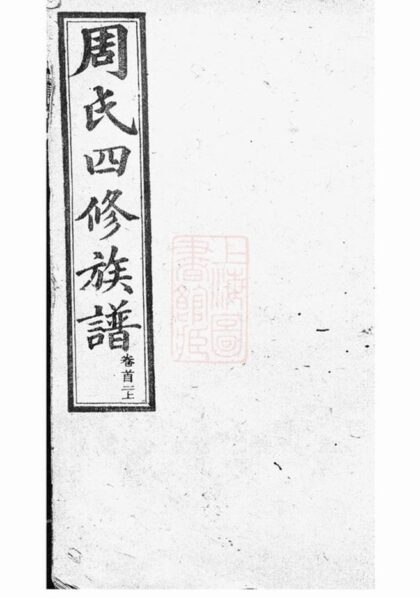 周氏四修族譜
卷首二上
上海圖
書館藏